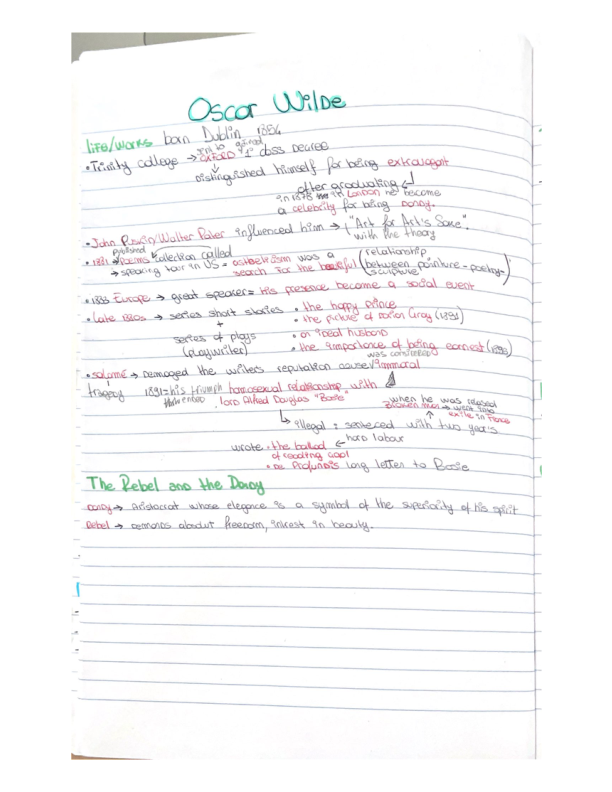 Oscar Wilde
life/works born Dublin 1854
went to gained
• Trinity college → OXFORD 1° class DEGREE
Distinguished himself for being extravagant
after graduating
in 1878 in London he become
a celebrity for being DANDY.
• John Ruskin/Walter Pater influenced him → "Art for Art's Sake".
with the theory
published
• 1881 → Poems collection called
relationship
→ speaking tour in US = aestheticism was a
search for the beautiful (between painture - poetrys
sculpture)
• 1883 Europe → great speaker = His presence become a social event
• Late 1880s → series short stories • the happy prince
+ • the picture of Dorian Gray (1891)
series of plays • an ideal husband
(playwriter) • the importance of being earnest (1895)
was considered
• salomé → Demaged the writers reputation cause immoral
tragedy 1891 = his triumph homosexual relationship with
lord Alfred Douglas "Bosie"
when he was relased
broken man → went into
exile in France
illegal : senteced with two year's
hard labour
wrote • the ballad
of reading gaol
• DE PROFUNDIS long letter to Bosie
The Rebel and the Dandy
DANDY → Aristocrat whose elegance is a symbol of the superiority of his spirit
Rebel → DEMANDS freedom, intrest in beauty.